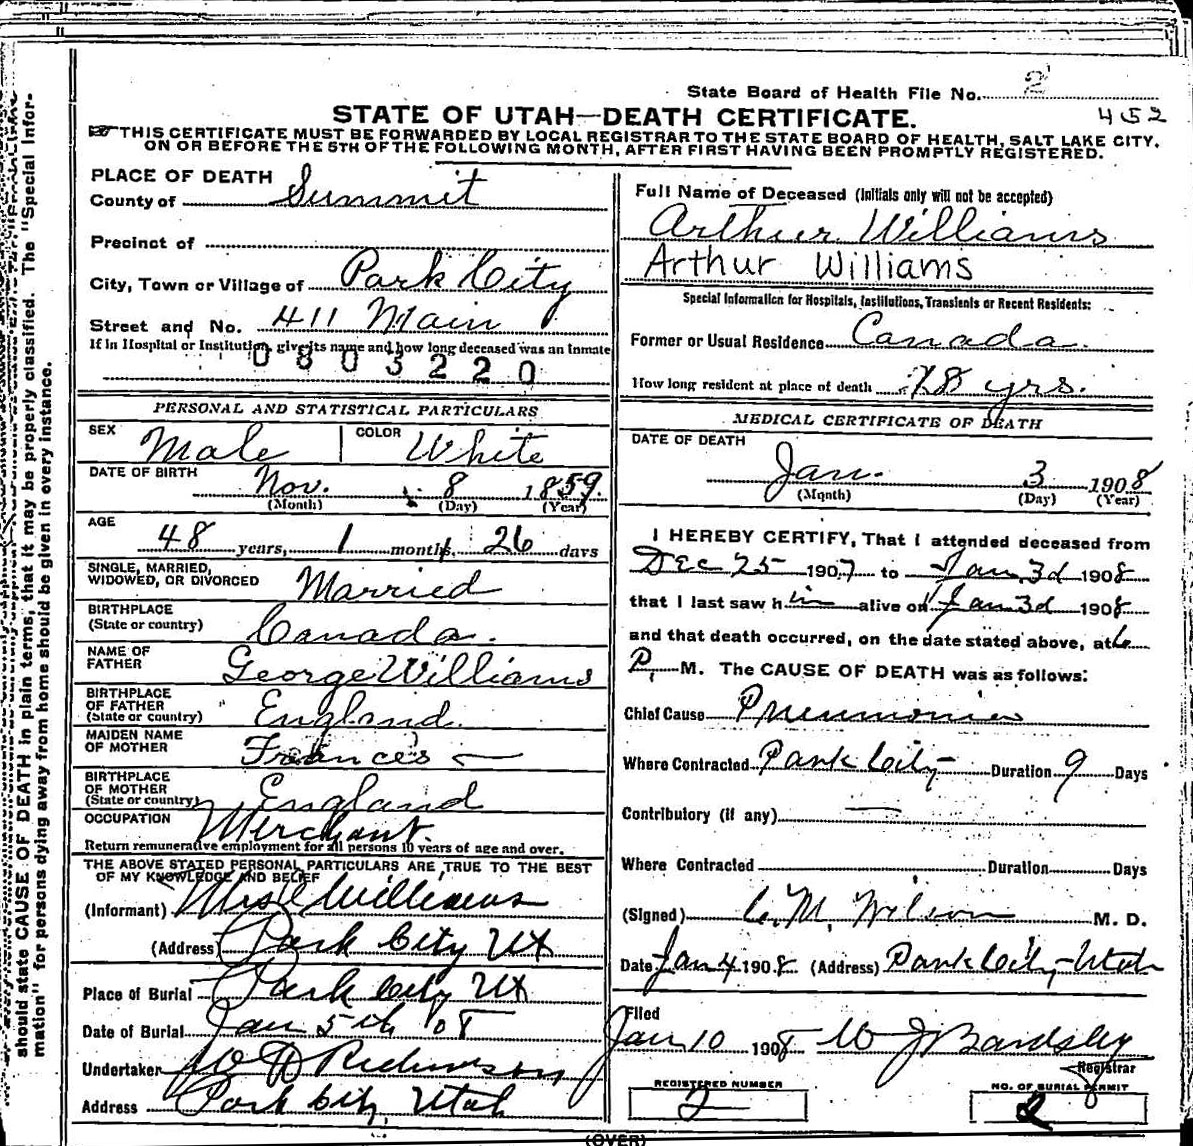 State Board of Health File No. 2
452
STATE OF UTAH—DEATH CERTIFICATE.
THIS CERTIFICATE MUST BE FORWARDED BY LOCAL REGISTRAR TO THE STATE BOARD OF HEALTH, SALT LAKE CITY,
ON OR BEFORE THE 5TH OF THE FOLLOWING MONTH, AFTER FIRST HAVING BEEN PROMPTLY REGISTERED.
should state CAUSE OF DEATH in plain terms, that it may be properly classified. The "Special Infor-
mation" for persons dying away from home should be given in every instance.
PLACE OF DEATH
County of Summit
Precinct of
City, Town or Village of Park City
Street and No. 411 Main
If in Hospital or Institution, give its name and how long deceased was an inmate
0803220
PERSONAL AND STATISTICAL PARTICULARS
SEX Male COLOR White
DATE OF BIRTH Nov. 8 1859.
(Month) (Day) (Year)
AGE 48 years, 1 months, 26 days
SINGLE, MARRIED,
WIDOWED, OR DIVORCED Married
BIRTHPLACE
(State or country) Canada.
NAME OF
FATHER George Williams
BIRTHPLACE
OF FATHER
(State or country) England.
MAIDEN NAME
OF MOTHER Frances —
BIRTHPLACE
OF MOTHER
(State or country) England
OCCUPATION Merchant.
Return remunerative employment for all persons 10 years of age and over.
THE ABOVE STATED PERSONAL PARTICULARS ARE TRUE TO THE BEST
OF MY KNOWLEDGE AND BELIEF
(Informant) Mrs Williams
(Address) Park City Ut
Place of Burial Park City Ut
Date of Burial Jan 5th 08
Undertaker W D Richardson
Address Park City, Utah
Full Name of Deceased (Initials only will not be accepted)
Arthur Williams
Arthur Williams
Special Information for Hospitals, Institutions, Transients or Recent Residents:
Former or Usual Residence Canada.
How long resident at place of death 18 yrs.
MEDICAL CERTIFICATE OF DEATH
DATE OF DEATH
Jan. 3 1908
(Month) (Day) (Year)
I HEREBY CERTIFY, That I attended deceased from
Dec 25 1907 to Jan 3d 1908
that I last saw him alive on Jan 3d 1908
and that death occurred, on the date stated above, at 6
P. M. The CAUSE OF DEATH was as follows:
Chief Cause Pneumonia
Where Contracted Park City Duration 9 Days
Contributory (if any) —
Where Contracted Duration Days
(Signed) C. M. Wilson M. D.
Date Jan 4 1908 (Address) Park City Utah
Filed
Jan 10 1908 W J Bardsley
Registrar
REGISTERED NUMBER
2
NO. OF BURIAL PERMIT
2
(OVER)